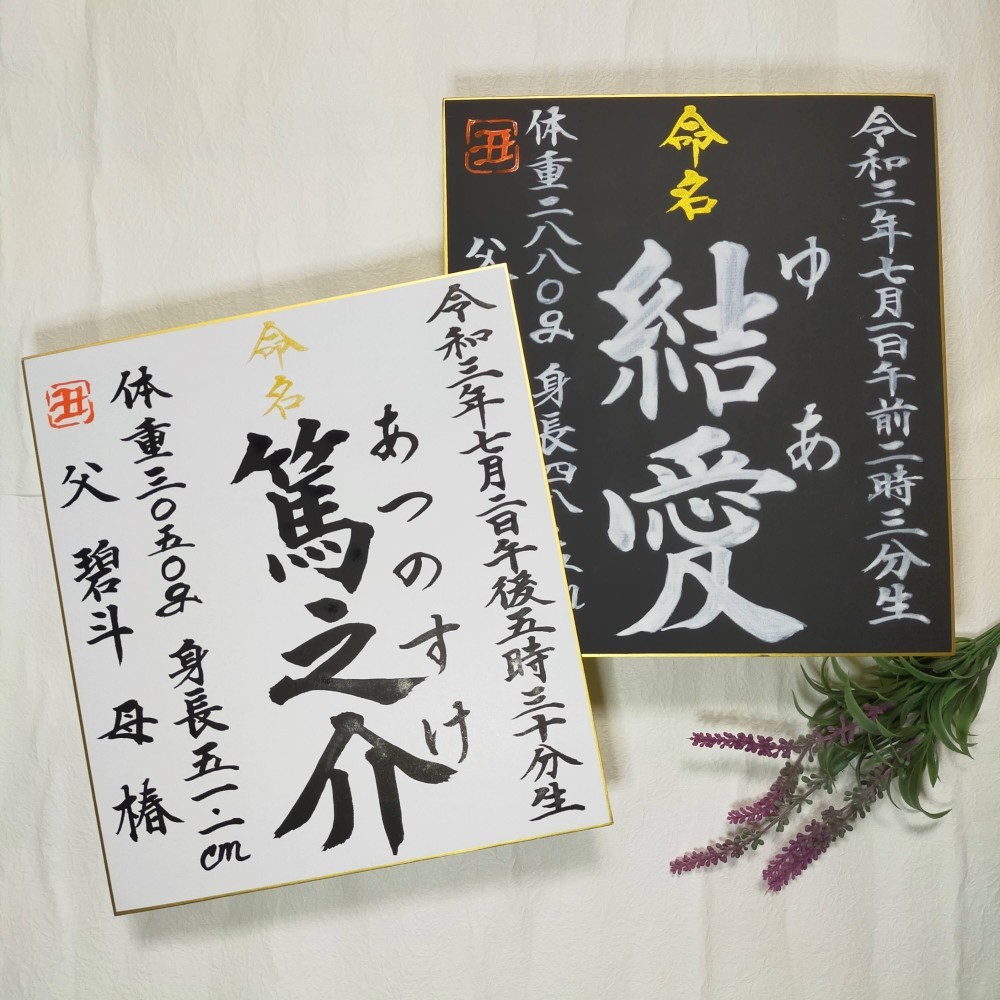 令和三年七月二日午後五時三十分生
あつのすけ
命名
篤之介
体重三〇五〇g 身長五一・一cm
父 碧斗 母 椿
丑
令和三年七月一日午前二時三分生
ゆあ
命名
結愛
体重二八八〇g 身長四八
父
丑